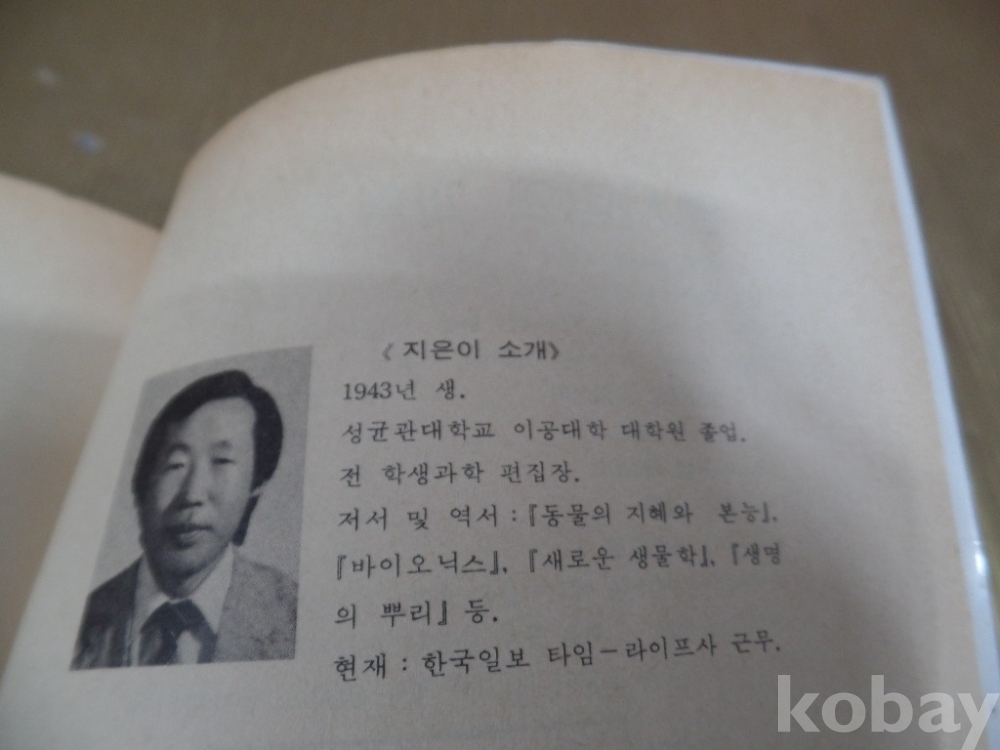 《 지은이 소개》
1943년 생.
성균관대학교 이공대학 대학원 졸업.
전 학생과학 편집장.
저서 및 역서 : 『동물의 지혜와 본능』,
『바이오닉스』, 『새로운 생물학』, 『생명
의 뿌리』 등.
현재 : 한국일보 타임－라이프사 근무.
kobay